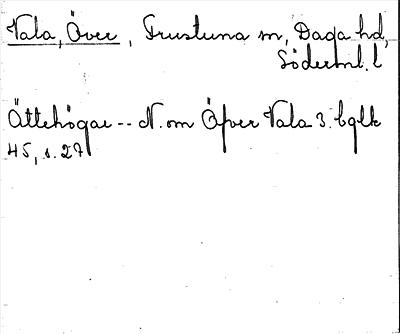 Vala, Över, Frustuna sn, Daga hd,
Söderml. l
Ättehögar -- N. om Öfver Vala 3. bglk
45, s. 27